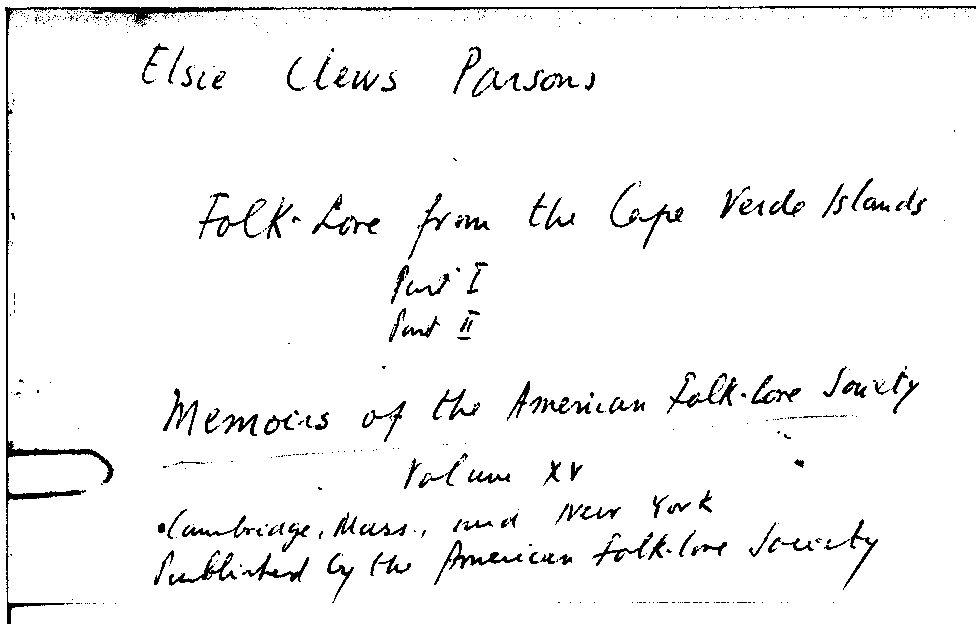 Elsie Clews Parsons
Folk-Lore from the Cape Verde Islands
Part I
Part II
Memoirs of the American Folk-Lore Society
Volume XV
Cambridge, Mass., and New York
Published by the American Folk-Lore Society